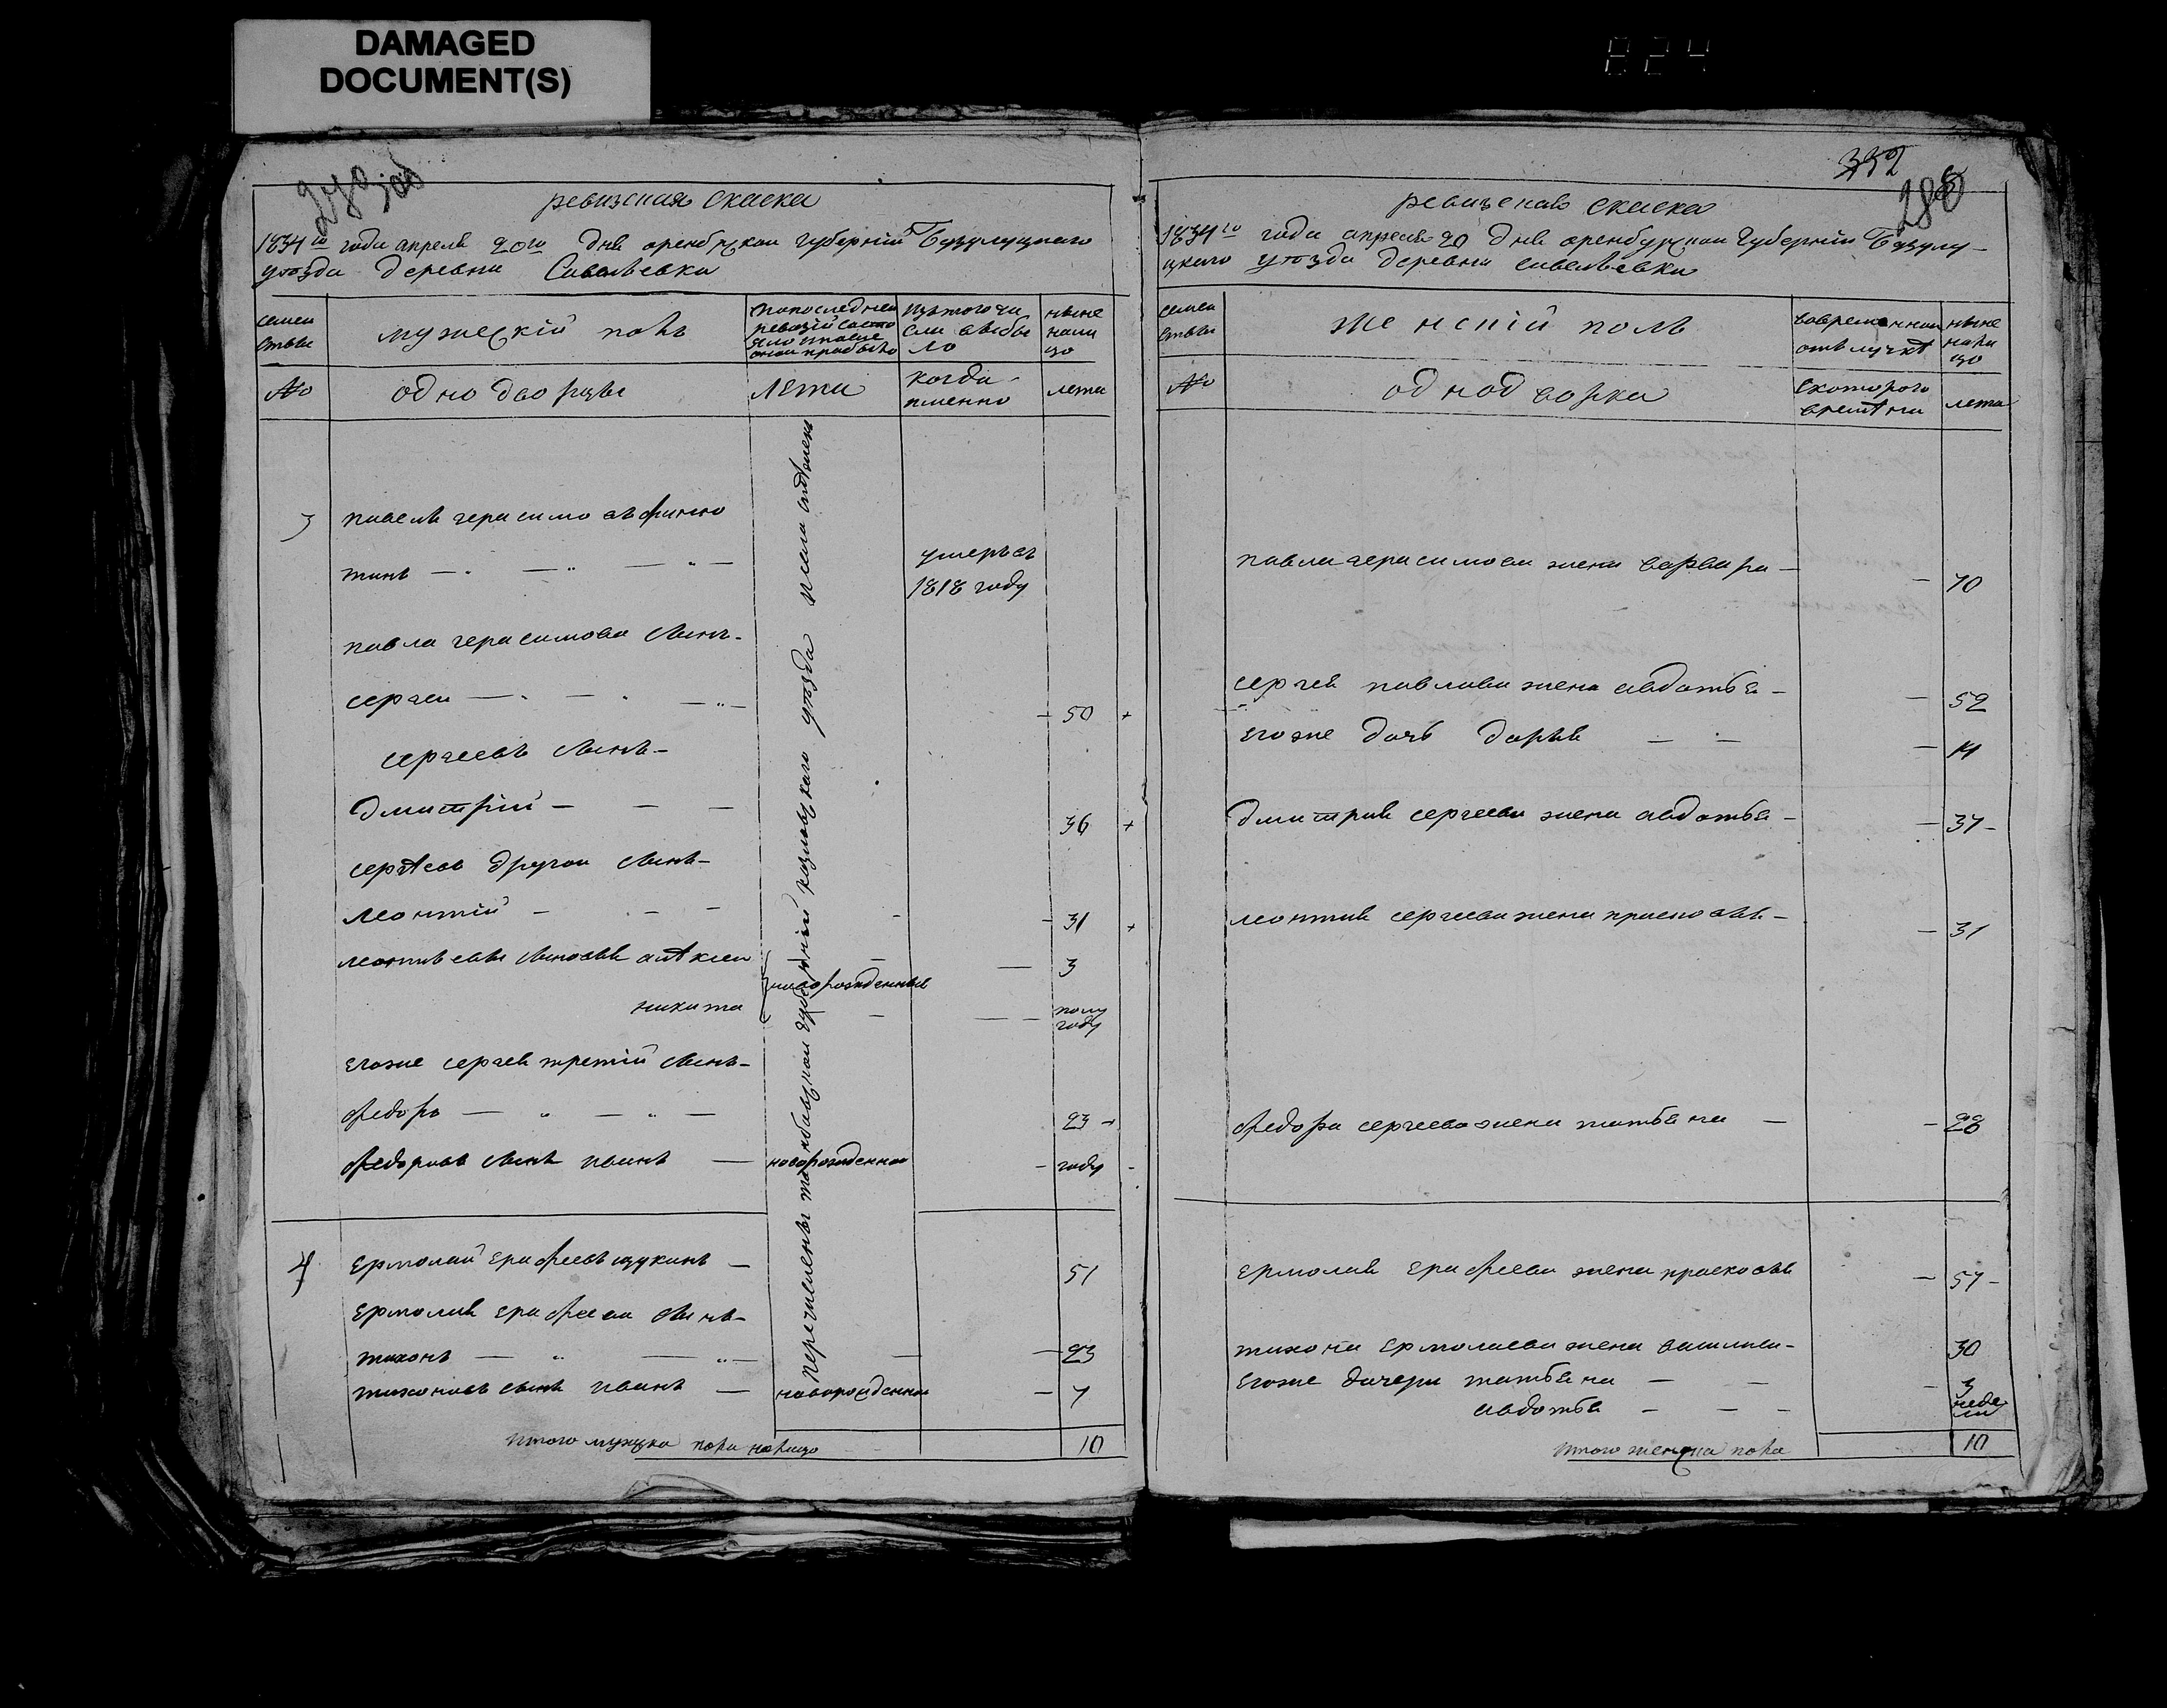 DAMAGED
DOCUMENT(S)
824
ревизская скаска
1834го года апреля 20го дня оренбурской губернии Бузулуцкаго
уѣзда деревни Савельевки
семеи
ства
мужескій полъ
попоследней
ревизій состо
яло и после
оной прибыло
изтого чи
сла выбы
ло
ныне
нали
цо
№
однодворцы
лета
когда
именно
лета
переселены тамбавской губерній козловскаго уѣзда
3
павелъ герасимовъ
умеръ въ
1818 году
павла герасимова сынъ
сергеи
50
сергеевъ сынъ
дмитрій
36
сергѣевъ другои сынъ
леонтій
31
леонтиевы сыновья алѣксеи
3
новорожденныя
никита
полу
году
егоже сергея третій сынъ
федоръ
23
федоровъ сынъ иванъ
новорожденнои
году
4
ермолай ерафеевъ щукинъ
51
ермолая ерафеева сынъ
тихонъ
23
тихоновъ сынъ иванъ
новорожденнои
7
итого мужска пола налицо
10
352
288
ревизская скаска
1834го года апреля 20 дня оренбурской губерніи Бузулу-
цкаго уѣзда деревни савельевки
семеи
ства
женскій полъ
вовременнои
отлучкѣ
ныне
нали
цо
№
однодворки
скоторого
времѣни
лета
павла герасимова жена варвара
70
сергея павлова жена авдотья
52
егоже дочь дарья
14
дмитрия сергеева жена авдотья
37
леонтия сергеева жена прасковья
31
федора сергеева жена татьяна
28
ермолая ерафеева жена прасковья
57
тихона ермолаева жена василиса
30
егоже дочери татьяна
3
авдотья
недели
итого женска пола
10